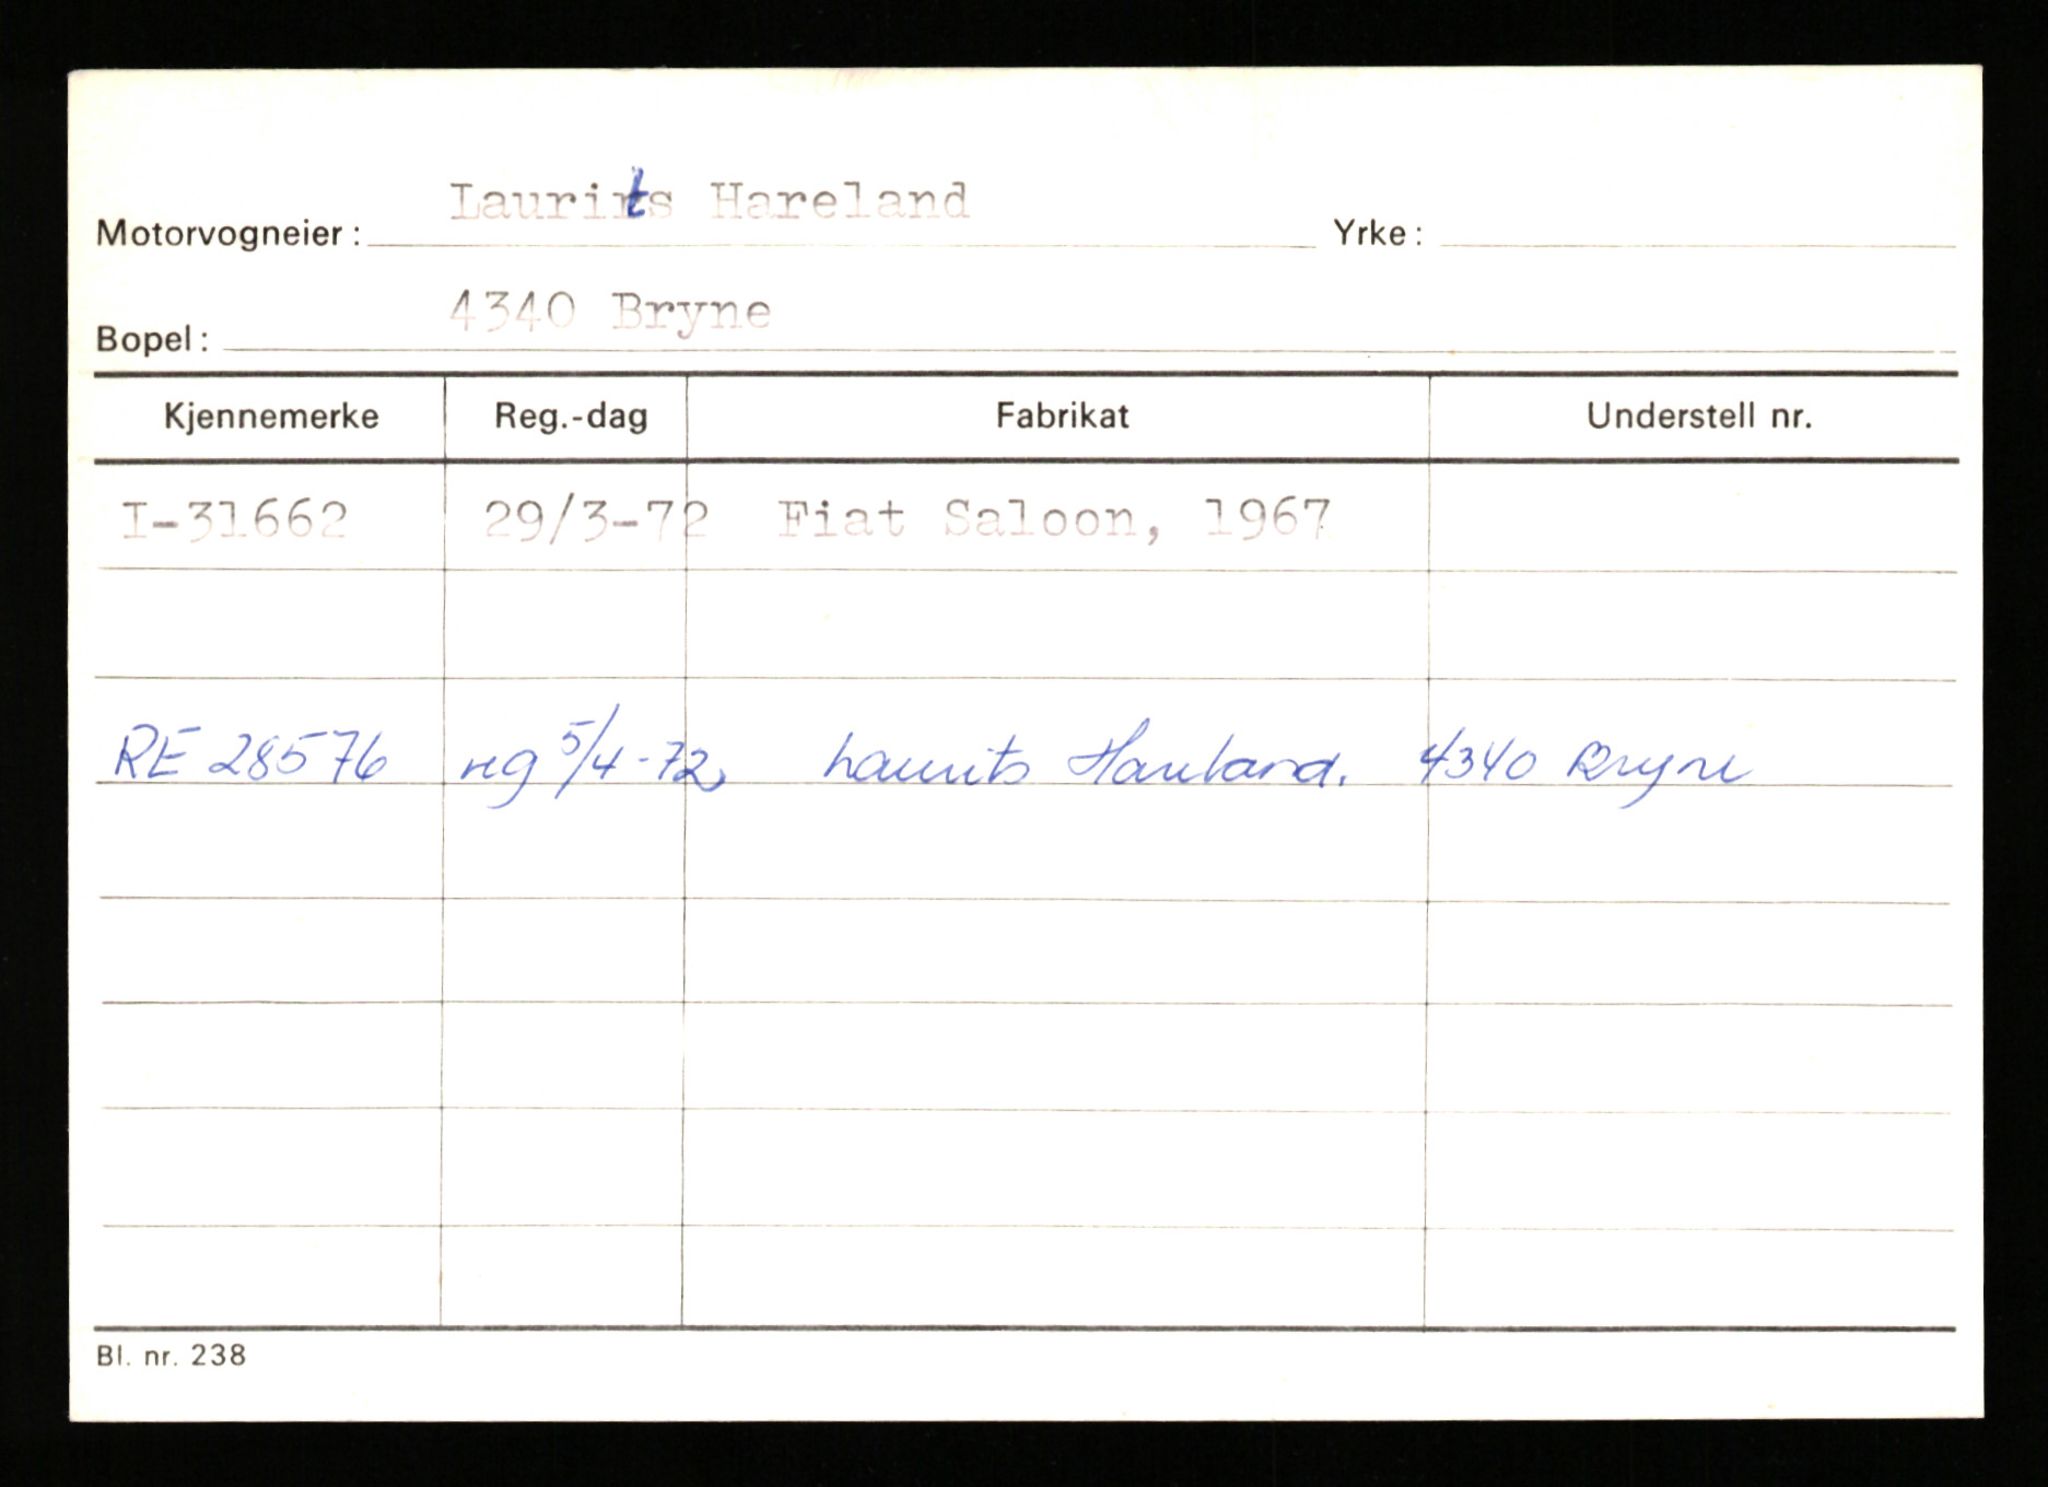 Motorvogneier: Laurits Hareland Yrke:
Bopel: 4340 Bryne
Kjennemerke Reg.-dag Fabrikat Understell nr.
I-31662 29/3-72 Fiat Saloon, 1967
RE 28576 reg 5/4-72, Laurits Hareland. 4340 Bryne
Bl. nr. 238